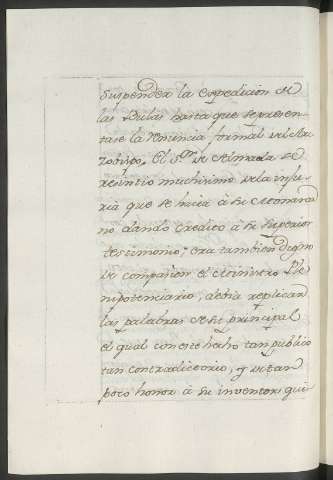 suspender la expedicion de
las Bulas hasta que se presen-
tase la renuncia formal del Ar-
zobispo. El Sr. de Almada se
resintio muchisimo de la inju-
ria que se hacia à su Monarca
no dando credito à su superior
testimonio; era tambien digno
de compasion el Ministro Ple-
nipotenciario, debia replicar
las palabras de su principal
el qual con este hecho tan publico
tan contradictorio, y de tan
poco honor à su inventor, qui-